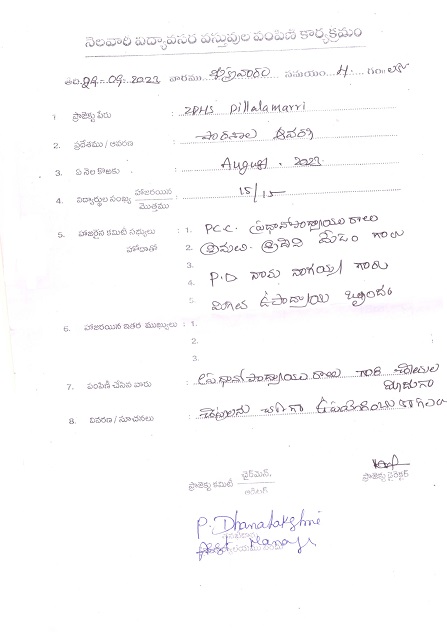 నెలవారి విద్యావసర వస్తువుల పంపిణి కార్యక్రమం
తేది 29-09-2023 వారము శుక్రవారం సమయం 4- గం॥లకు
1 ప్రాజెక్టు పేరు : ZPHS Pillalamarri
2. ప్రదేశము / ఆవరణ : పాఠశాల ఆవరణ
3. ఏ నెల కొఱకు : August. 2023
4. విద్యార్థుల సంఖ్య హాజరయిన / మొత్తము : 15/15
5. హాజరైన కమిటి సభ్యులు : 1. P.C.C. ప్రధానోపాధ్యాయు రాలు
హోదాతో 2. శ్రీమతి. మేడం గారు
3.
4. P.D నాగయ్య గారు
5. మిగిలిన ఉపాధ్యాయ బృందం
6. హాజరయిన ఇతర ముఖ్యులు : 1.
2.
3.
7. పంపిణీ చేసిన వారు : ప్రధానోపాధ్యాయు రాలు గారి చేతుల మీదుగా
8. వివరణ / సూచనలు :
ప్రాజెక్టు కమిటి ఛైర్మెన్.
ప్రాజెక్టు డైరెక్టర్
P. Dhanalakshmi